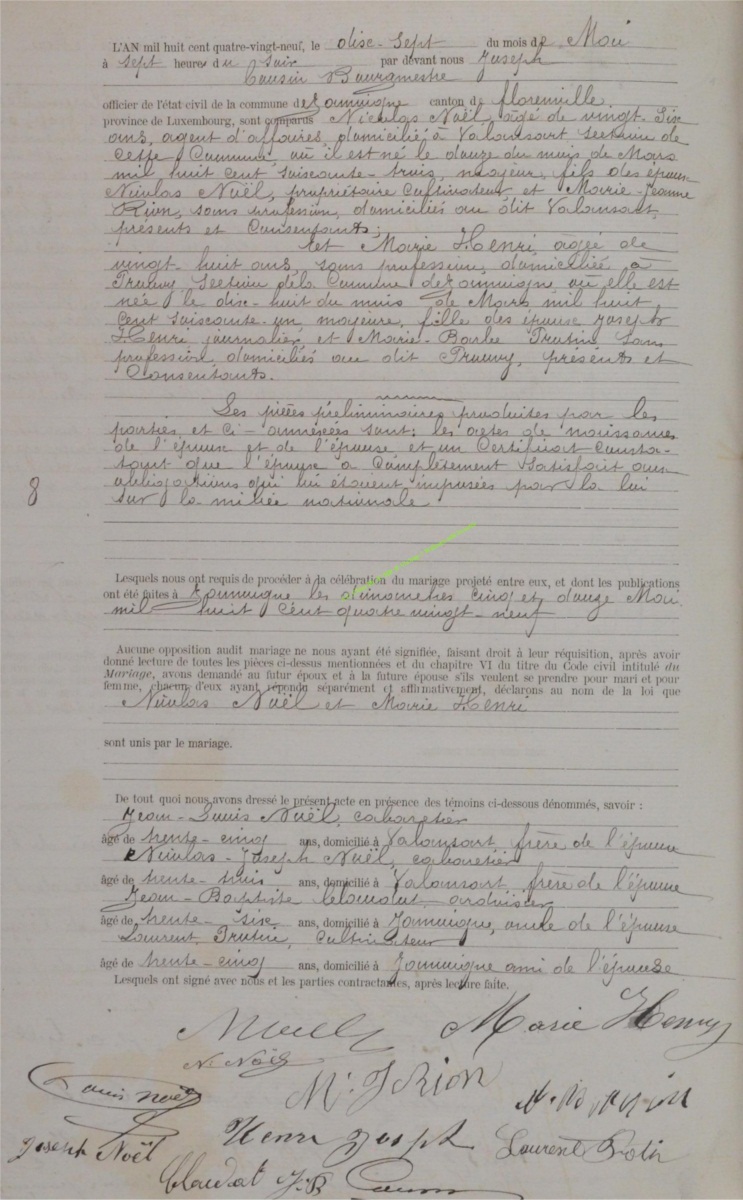 L'AN mil huit cent quatre-vingt-neuf, le disc-sept du mois de Mai
à sept heures du soir par devant nous Joseph
Causin Bourgmestre
officier de l'état civil de la commune de Jamoigne canton de florenville,
province de Luxembourg, sont comparus Nicolas Noël, âgé de vingt-Six
ans, agent d'affaires, domicilié à Valansart Section de
Cette Commune, où il est né le douze du mois de Mars
mil huit cent soixante-trois, majeur, fils des époux
Nicolas Noël, propriétaire Cultivateur et Marie-Jeanne
Rion, sans profession, domiciliés au dit Valansart,
présents et Consentants;
et Marie Henri âgée de
vingt-huit ans, sans profession, domiciliée à
Prouvy Section de la Commune de Jamoigne où elle est
née le disc-huit du mois de Mars mil huit
Cent Soiscante-un majeure, fille des époux Joseph
Henri journalier et Marie-Barbe Protin Sans
profession domiciliés au dit Prouvy, présents et
Consentants.
Les pièces préliminaires produites par les
parties et Ci-annexées sont: les actes de naissance
de l'époux et de l'épouse et un Certificat Consta-
tant que l'époux a Complètement satisfait aux
obligations qui lui étaient imposées par la loi
8
sur la milice nationale
Lesquels nous ont requis de procéder à la célébration du mariage projeté entre eux, et dont les publications
ont été faites à Jamoigne les dimanches cinq et douze Mai
mil huit Cent quatre vingt-neuf
Aucune opposition audit mariage ne nous ayant été signifiée, faisant droit à leur réquisition, après avoir
donné lecture de toutes les pièces ci-dessus mentionnées et du chapitre VI du titre du Code civil intitulé du
Mariage, avons demandé au futur époux et à la future épouse s'ils veulent se prendre pour mari et pour
femme, chacun d'eux ayant répondu séparément et affirmativement, déclarons au nom de la loi que
Nicolas Noël et Marie Henri
sont unis par le mariage.
De tout quoi nous avons dressé le présent acte en présence des témoins ci-dessous dénommés, savoir :
Jean-Louis Noël, cabaretier
âgé de trente-cinq ans, domicilié à Valansart, frère de l'époux
Nicolas-Joseph Noël, cabaretier
âgé de trente-trois ans, domicilié à Valansart, frère de l'époux
Jean-Baptiste Claudot, ardoisier
âgé de trente-six ans, domicilié à Jamoigne, oncle de l'épouse
Laurent Protin, Cultivateur
âgé de trente-cinq ans, domicilié à Jamoigne ami de l'épouse
Lesquels ont signé avec nous et les parties contractantes, après lecture faite.
Marie Henry
N. Noël
Louis Noël
M. J Rion
Joseph Noël
Henri Joseph
Laurent Protin
Claudot J. B